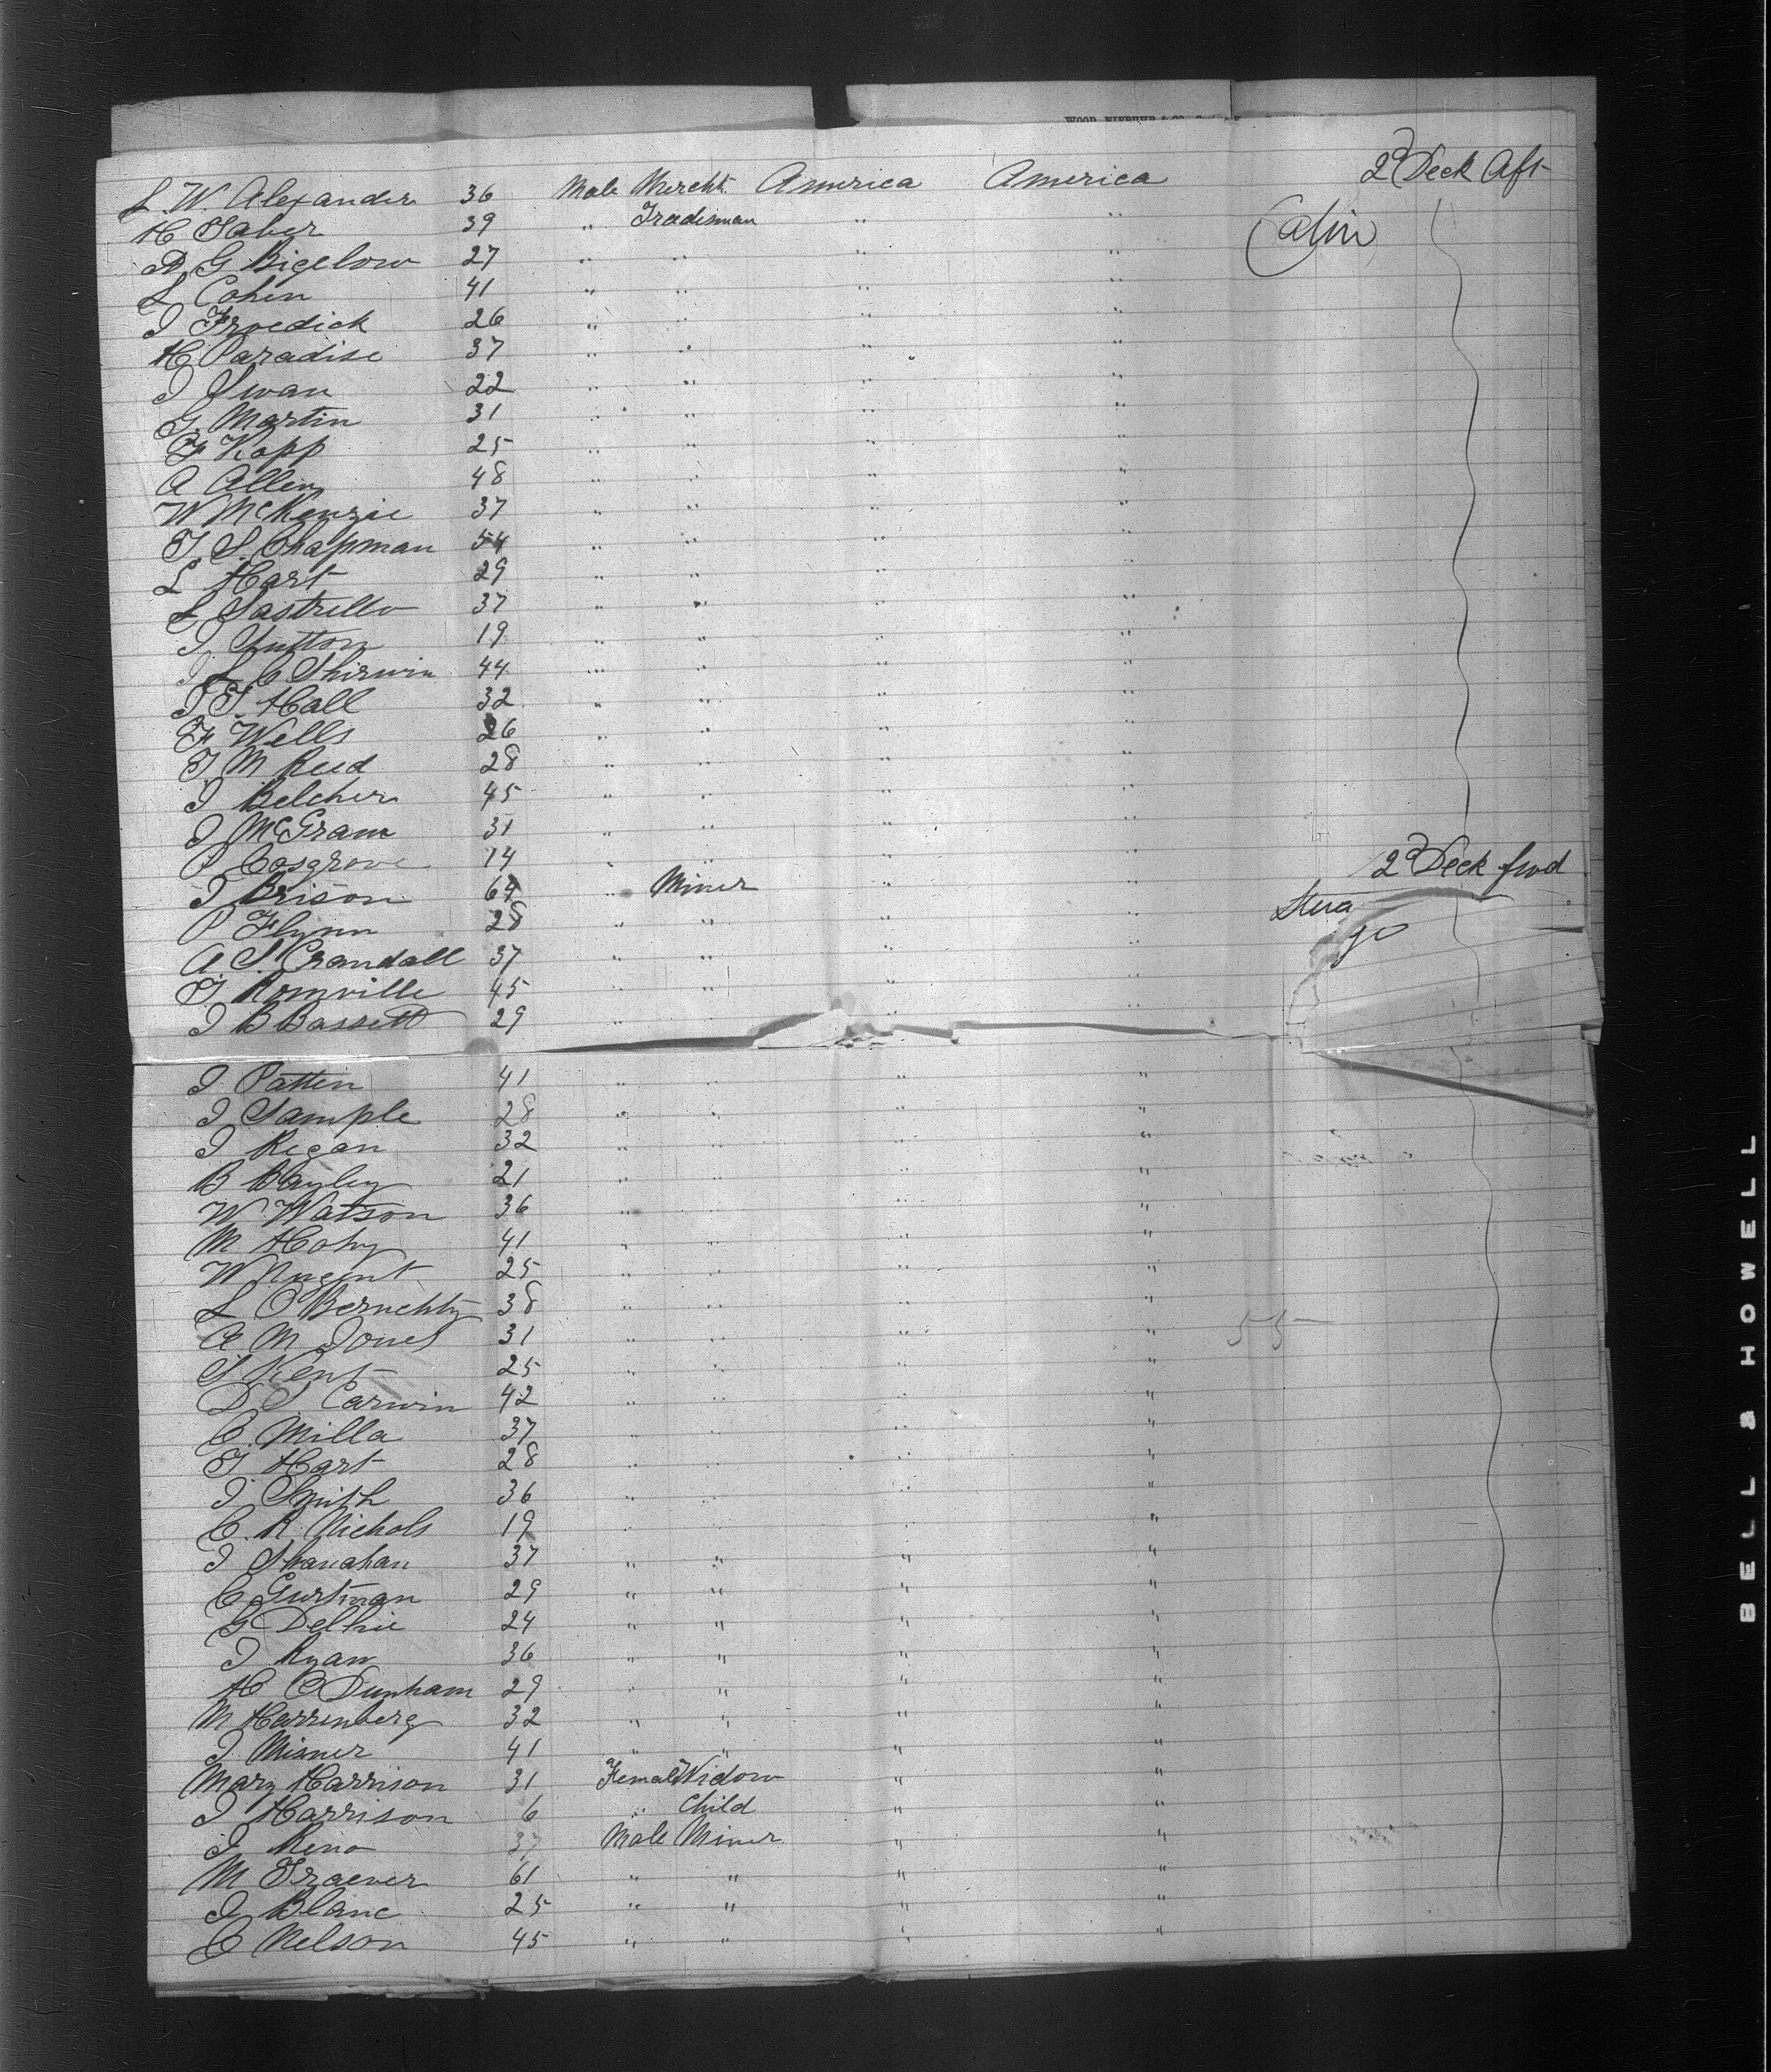 2d Deck Aft
L. W. Alexander 36 Male Mercht. America America
H Saber 39 " Tradesman " "
Cabin
A G Bigelow 27 " " " "
L Cohen 41 " " " "
J Froedick 26 " " " "
H Paradise 37 " " " "
J Swan 22 " " " "
G. Martin 31 " " " "
F Kopp 25 " " " "
A Allen 48 " " " "
W McKenzie 37 " " " "
T. S. Chapman 54 " " " "
L Hart 29 " " " "
L Sastrello 37 " " " "
J. Sutton 19 " " " "
L C Shirwin 44 " " " "
J T. Hall 32 " " " "
F Wells 26 " " " "
T M Reed 28 " " " "
J Belcher 45 " " " "
J McGram 31 " " " "
P Cosgrove 14 " " " "
2d Deck fwd
J Brison 64 " Miner " "
Steerage
P Flynn 28 " " " "
A. S. Crandall 37 " " " "
T Romville 45 " " " "
J B Bassett 29 " " "
J Patten 41 " " " "
J Sample 28 " " " "
J Regan 32 " " " "
B Bayley 21 " " " "
W Watson 36 " " " "
M Hohy 41 " " " "
W Nugent 25 " " " "
L O Bernchty 38 " " " "
A. M Jones 31 " " " "
55
T Kent 25 " " " "
D S. Carwin 42 " " " "
C. Milla 37 " " " "
T Hart 28 " " " "
J Smith 36 " " " "
C. R Nichols 19 " " " "
J Shanahan 37 " " " "
C Gurtman 29 " " " "
G Delhie 24 " " " "
J Ryan 36 " " " "
H C Dunham 29 " " " "
M Harrenberg 32 " " " "
J Misner 41 " " " "
Mary Harrison 31 Female Widow " "
J Harrison 6 " Child " "
J Reno 37 Male Miner " "
M Graever 61 " " " "
J Blanc 25 " " " "
C Nelson 45 " " " "
BELL & HOWELL